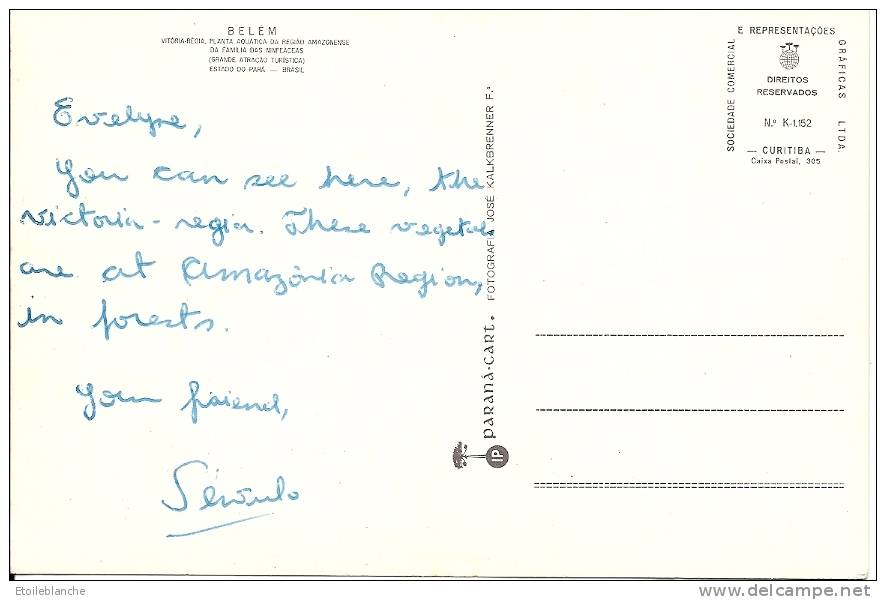 BELÉM
VITÓRIA-RÉGIA, PLANTA AQUATICA DA REGIÃO AMAZONENSE
DA FAMILIA DAS NINFEACEAS
(GRANDE ATRAÇÃO TURÍSTICA)
ESTADO DO PARÁ — BRASIL
Evelyne,
You can see here, the
victoria-regia. These vegetal
are at Amazônia Region,
in forests.
Your friend,
PARANÁ-CART. FOTOGRAFIA JOSÉ KALKBRENNER F.º
IP
SOCIEDADE COMERCIAL
E REPRESENTAÇÕES
GRÁFICAS LTDA.
DIREITOS
RESERVADOS
N.º K-1.152
— CURITIBA —
Caixa Postal, 305
Etoileblanche
delcampe.net